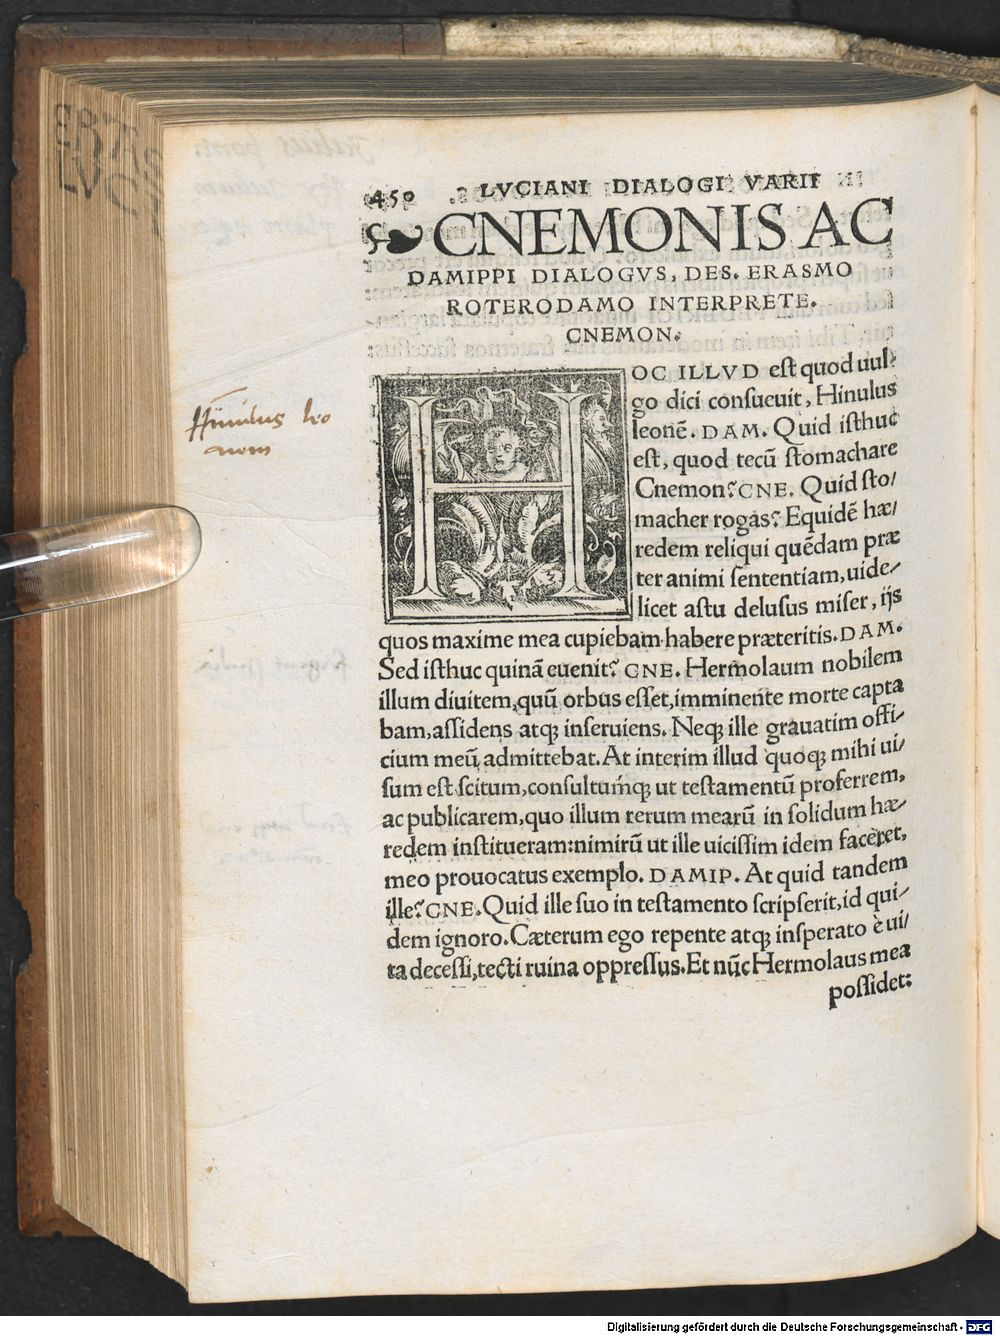 450 LVCIANI DIALOGI VARII
CNEMONIS AC
DAMIPPI DIALOGVS, DES. ERASMO
ROTERODAMO INTERPRETE.
CNEMON.
HOC ILLVD eſt quod uul/
go dici conſueuit, Hinulus
leonē. DAM. Quid iſthuc
eſt, quod tecū ſtomachare
Cnemon? CNE. Quid ſto/
macher rogas? Equidē hæ/
redem reliqui quēdam præ
ter animi ſententiam, uide/
licet aſtu deluſus miſer, ijs
quos maxime mea cupiebam habere præteritis. DAM.
Sed iſthuc quinā euenit? CNE. Hermolaum nobilem
illum diuitem, quū orbus eſſet, imminente morte capta
bam, aſſidens atq; inſeruiens. Neq; ille grauatim offi/
cium meū admittebat. At interim illud quoq; mihi ui/
ſum eſt ſcitum, conſultumq; ut teſtamentū proferrem,
ac publicarem, quo illum rerum mearū in ſolidum hæ/
redem inſtitueram: nimirū ut ille uiciſſim idem faceret,
meo prouocatus exemplo. DAMIP. At quid tandem
ille? CNE. Quid ille ſuo in teſtamento ſcripſerit, id qui/
dem ignoro. Cæterum ego repente atq; inſperato è ui/
ta deceſſi, tecti ruina oppreſſus. Et nūc Hermolaus mea
poſſidet:
Hinulus leo
nem
Digitalisierung gefördert durch die Deutsche Forschungsgemeinschaft - DFG